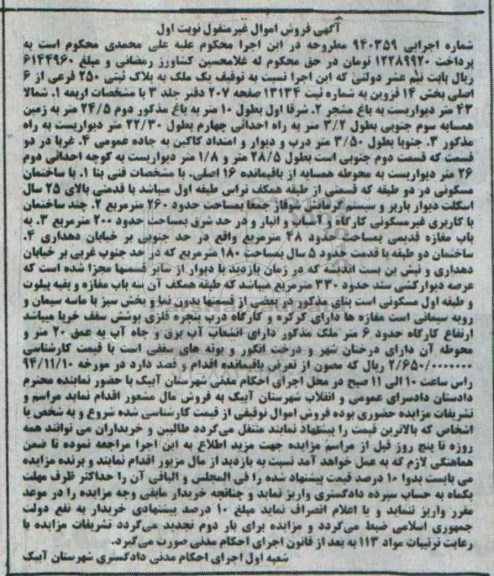 آگهی فروش اموال غیرمنقول نوبت اول
شماره اجرایی ۹۴۰۳۵۹ مطروحه در این اجرا محکوم علیه علی محمدی محکوم است به
پرداخت ۱۲۲۸۹۹۲۰ تومان در حق محکوم له غلامحسین کشاورز رمضانی و مبلغ ۶۱۴۴۹۶۰
ریال بابت نیم عشر دولتی که این اجرا نسبت به توقیف یک ملک به پلاک ثبتی ۲۵۰ فرعی از ۶
اصلی بخش ۱۴ قزوین به شماره ثبت ۱۳۱۳۴ صفحه ۲۰۷ دفتر جلد ۳ با مشخصات اربعه ۱. شمالا
۴۳ متر دیواریست به باغ مشجر ۲. شرقا اول بطول ۱۰ متر به باغ مذکور دوم ۲۴/۵ متر به زمین
همسایه سوم جنوبی بطول ۳/۲ متر به راه احداثی چهارم بطول ۲۲/۳۰ متر دیواریست به راه
مذکور ۳. جنوبا بطول ۳/۵۰ متر درب و دیوار و امتداد کاکین به جاده عمومی ۴. غربا در دو
قسمت که قسمت دوم جنوبی است بطول ۲۸/۵ متر و ۱/۸ متر دیواریست به کوچه احداثی دوم
۲۶ متر دیواریست به محوطه همسایه از باقیمانده ۱۶ اصلی. با مشخصات فنی بنا ۱. با ساختمان
مسکونی در دو طبقه که قسمتی از طبقه همکف تراس طبقه اول میباشد با قدمتی بالای ۲۵ سال
اسکلت دیوار باربر و سیستم گرمایشی شوفاژ جمعا بمساحت حدود ۲۶۰ مترمربع ۲. چند ساختمان
با کاربری غیرمسکونی کارگاه و آسیاب و انبار و در حد شرق بمساحت حدود ۲۰۰ مترمربع ۳. به
باب مغازه قدیمی بمساحت حدود ۴۸ مترمربع واقع در حد جنوبی بر خیابان دهداری ۴.
ساختمان دو طبقه با قدمت حدود ۵ سال بمساحت ۱۸۰ مترمربع که در حد جنوب غربی بر خیابان
دهداری و نبش بن بست اندیشه که در زمان بازدید با دیوار از سایر قسمتها مجزا شده است که
عرصه دیوارکشی شد حدود ۳۳۰ مترمربع میباشد که طبقه همکف آن سه باب مغازه و بقیه پیلوت
و طبقه اول مسکونی است بنای مذکور در بعضی از قسمتها بدون نما و بخش سبز با ماسه سیمان و
رویه سیمانی است مغازه ها دارای کرکره و کارگاه درب پنجره فلزی پوشش سقف خرپا میباشد
ارتفاع کارگاه حدود ۶ متر ملک مذکور دارای انشعاب آب برق و چاه آب به عمق ۲۰ متر و
محوطه آن دارای درختان شهر و درخت انگور و بوته های سقفی است با قیمت کارشناسی
۲/۶۵۰/۰۰۰۰۰۰۰ ریال که مصون از تعرض باقیمانده اقدام و قصد دارد در مورخه ۹۴/۱۱/۱۰
راس ساعت ۱۰ الی ۱۱ صبح در محل اجرای احکام مدنی شهرستان آبیک با حضور نماینده محترم
دادستان دادسرای عمومی و انقلاب شهرستان آبیک به فروش مال مشهور اقدام نماید مراسم و
تشریفات مزایده حضوری بوده فروش اموال توقیفی از قیمت کارشناسی شده شروع و به شخص یا
اشخاص که بالاترین قیمت را پیشنهاد نمایند منتقل می‌گردد طالبین و خریداران می توانند همه
روزه تا پنج روز قبل از مراسم مزایده جهت مزید اطلاع به این اجرا مراجعه نموده تا ضمن
هماهنگی لازم که به عمل خواهد آمد نسبت به بازدید از مال مزبور اقدام نمایند و برنده مزایده
می بایست بدوا ۱۰ درصد قیمت پیشنهاد شده را فی المجلس و الباقی آن را حداکثر ظرف مهلت
یکماه به حساب سپرده دادگستری واریز نماید و چنانچه خریدار مابقی وجه مزایده را در موعد
مقرر واریز ننماید و یا اعلام انصراف نماید مبلغ ۱۰ درصد پیشنهادی خریدار به نفع دولت
جمهوری اسلامی ضبط می‌گردد و مزایده برای بار دوم تجدید می‌گردد تشریفات مزایده با
رعایت ترتیبات مواد ۱۱۳ به بعد از قانون اجرای احکام مدنی صورت می‌گیرد.
شعبه اول اجرای احکام مدنی دادگستری شهرستان آبیک